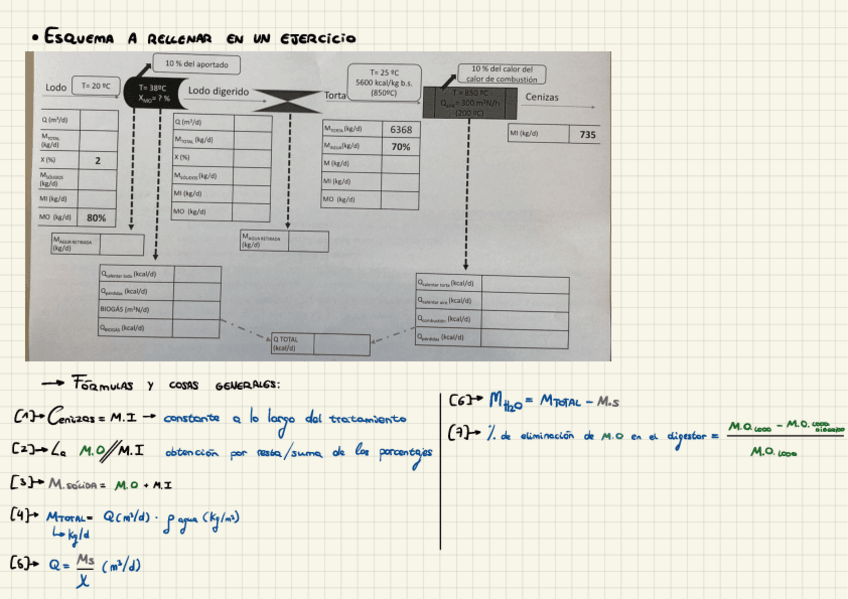 • ESQUEMA A RELLENAR EN UN EJERCICIO
10 % del aportado
T= 25 ºC
5600 kcal/kg b.s.
(850ºC)
10 % del calor del
calor de combustión
Lodo
T= 20 ºC
T= 38ºC
X_MO= ? %
Lodo digerido
Torta
T = 850 ºC
=300 m³N/h
(200 ºC)
Cenizas
Q (m³/d)
M_TOTAL (kg/d)
X (%) 2
M_SÓLIDOS (kg/d)
MI (kg/d)
MO (kg/d) 80%
Q (m³/d)
M_TOTAL (kg/d)
X (%)
M_SÓLIDOS (kg/d)
MI (kg/d)
MO (kg/d)
M_TORTA (kg/d) 6368
M_AGUA (kg/d) 70%
M (kg/d)
MI (kg/d)
MO (kg/d)
MI (kg/d) 735
M_AGUA RETIRADA (kg/d)
M_AGUA RETIRADA (kg/d)
Q_calentar lodo (kcal/d)
Q_pérdidas (kcal/d)
BIOGÁS (m³N/d)
Q_BIOGÁS (kcal/d)
Q TOTAL (kcal/d)
Q_calentar torta (kcal/d)
Q_calentar aire (kcal/d)
Q_combustión (kcal/d)
Q_pérdidas (kcal/d)
→ FÓRMULAS Y COSAS GENERALES:
[1]→ Cenizas = M.I → constante a lo largo del tratamiento
[2]→ La M.O//M.I obtención por resta/suma de los porcentajes
[3]→ M.SÓLIDA = M.O + M.I
[4]→ MTOTAL = Q(m³/d) · ρ agua (kg/m³)
↳ kg/d
[5]→ Q = Ms/X (m³/d)
[6]→ M_H2O = MTOTAL - M.s
[7]→ % de eliminación de M.O en el digestor = M.O. LODO - M.O. LODO DIGERIDO / M.O. LODO